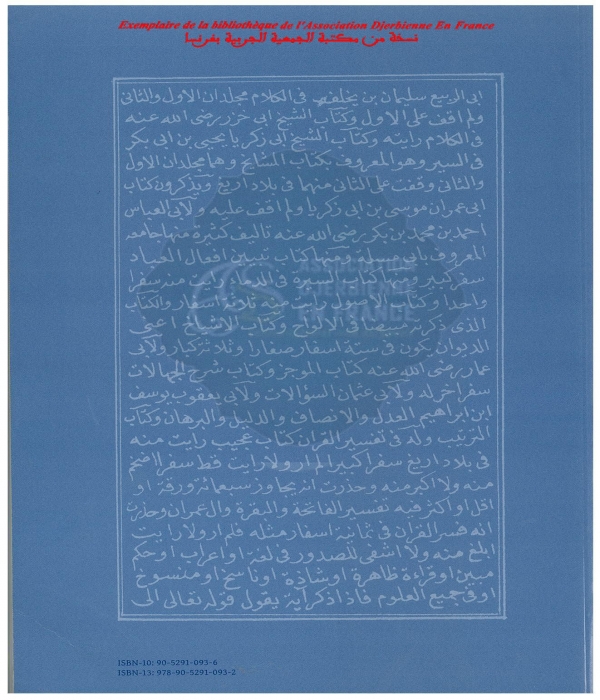 Exemplaire de la bibliothèque de l'Association Djerbienne En France
نسخة من مكتبة الجمعية الجربية بفرنسا
ابى الربيع سليمان بن يخلف فى الكلام مجلدان الاول والثانى
ولم اقف على الاول وكتاب الشيخ ابى خزر رضى الله عنه
فى الكلام رايته وكتاب الشيخ ابى زكريا يحيى بن ابى بكر
فى السير وهو المعروف بكتاب المشايخ وهما مجلدان الاول
والثانى وقفت على الثانى منهما فى بلاد اريغ ويذكرون كتاب
ابى عمران موسى بن ابى زكريا ولم اقف عليه ولابى العباس
احمد بن محمد بن بكر رضى الله عنه تاليف كثيرة منها جامعه
المعروف بابى مسئلة ومنها كتاب تبيين افعال العباد
واحدا وكتاب الاصول رايت منه ثلاثة اسفار والكتاب
الذى ذكرته مبيضا فى الالواح وكتاب الاشياخ اعنى
الديوان يكون فى ستة اسفار صغارا وثلاثة كبار ولابى
عمار رضى الله عنه كتاب الموجز وكتاب شرح الجهالات
سفر اخر له ولابى عثمان السؤالات ولابى يعقوب يوسف
ابن ابراهيم العدل والانصاف والدليل والبرهان وكتاب
الترتيب وله فى تفسير القران كتاب عجيب رايت منه
فى بلاد اريغ سفرا كبيرا لم ار ولا رايت قط سفرا اضخم
منه ولا اكبر منه وحذرت انه يجاوز سبعمائة ورقة او
اقل او اكثر فيه تفسير الفاتحة والبقرة وال عمران وحذرت
انه فسر القران فى ثمانية اسفار مثله فلم ار ولا رايت
ابلغ منه ولا اشفى للصدور فى لغة او اعراب او حكم
مبين او قراءة ظاهرة او شاذة او ناسخ او منسوخ
او فى جميع العلوم فاذا ذكر اية يقول قوله تعالى الى
ASSOCIATION
DJERBIENNE
EN FRANCE
ISBN-10: 90-5291-093-6
ISBN-13: 978-90-5291-093-2